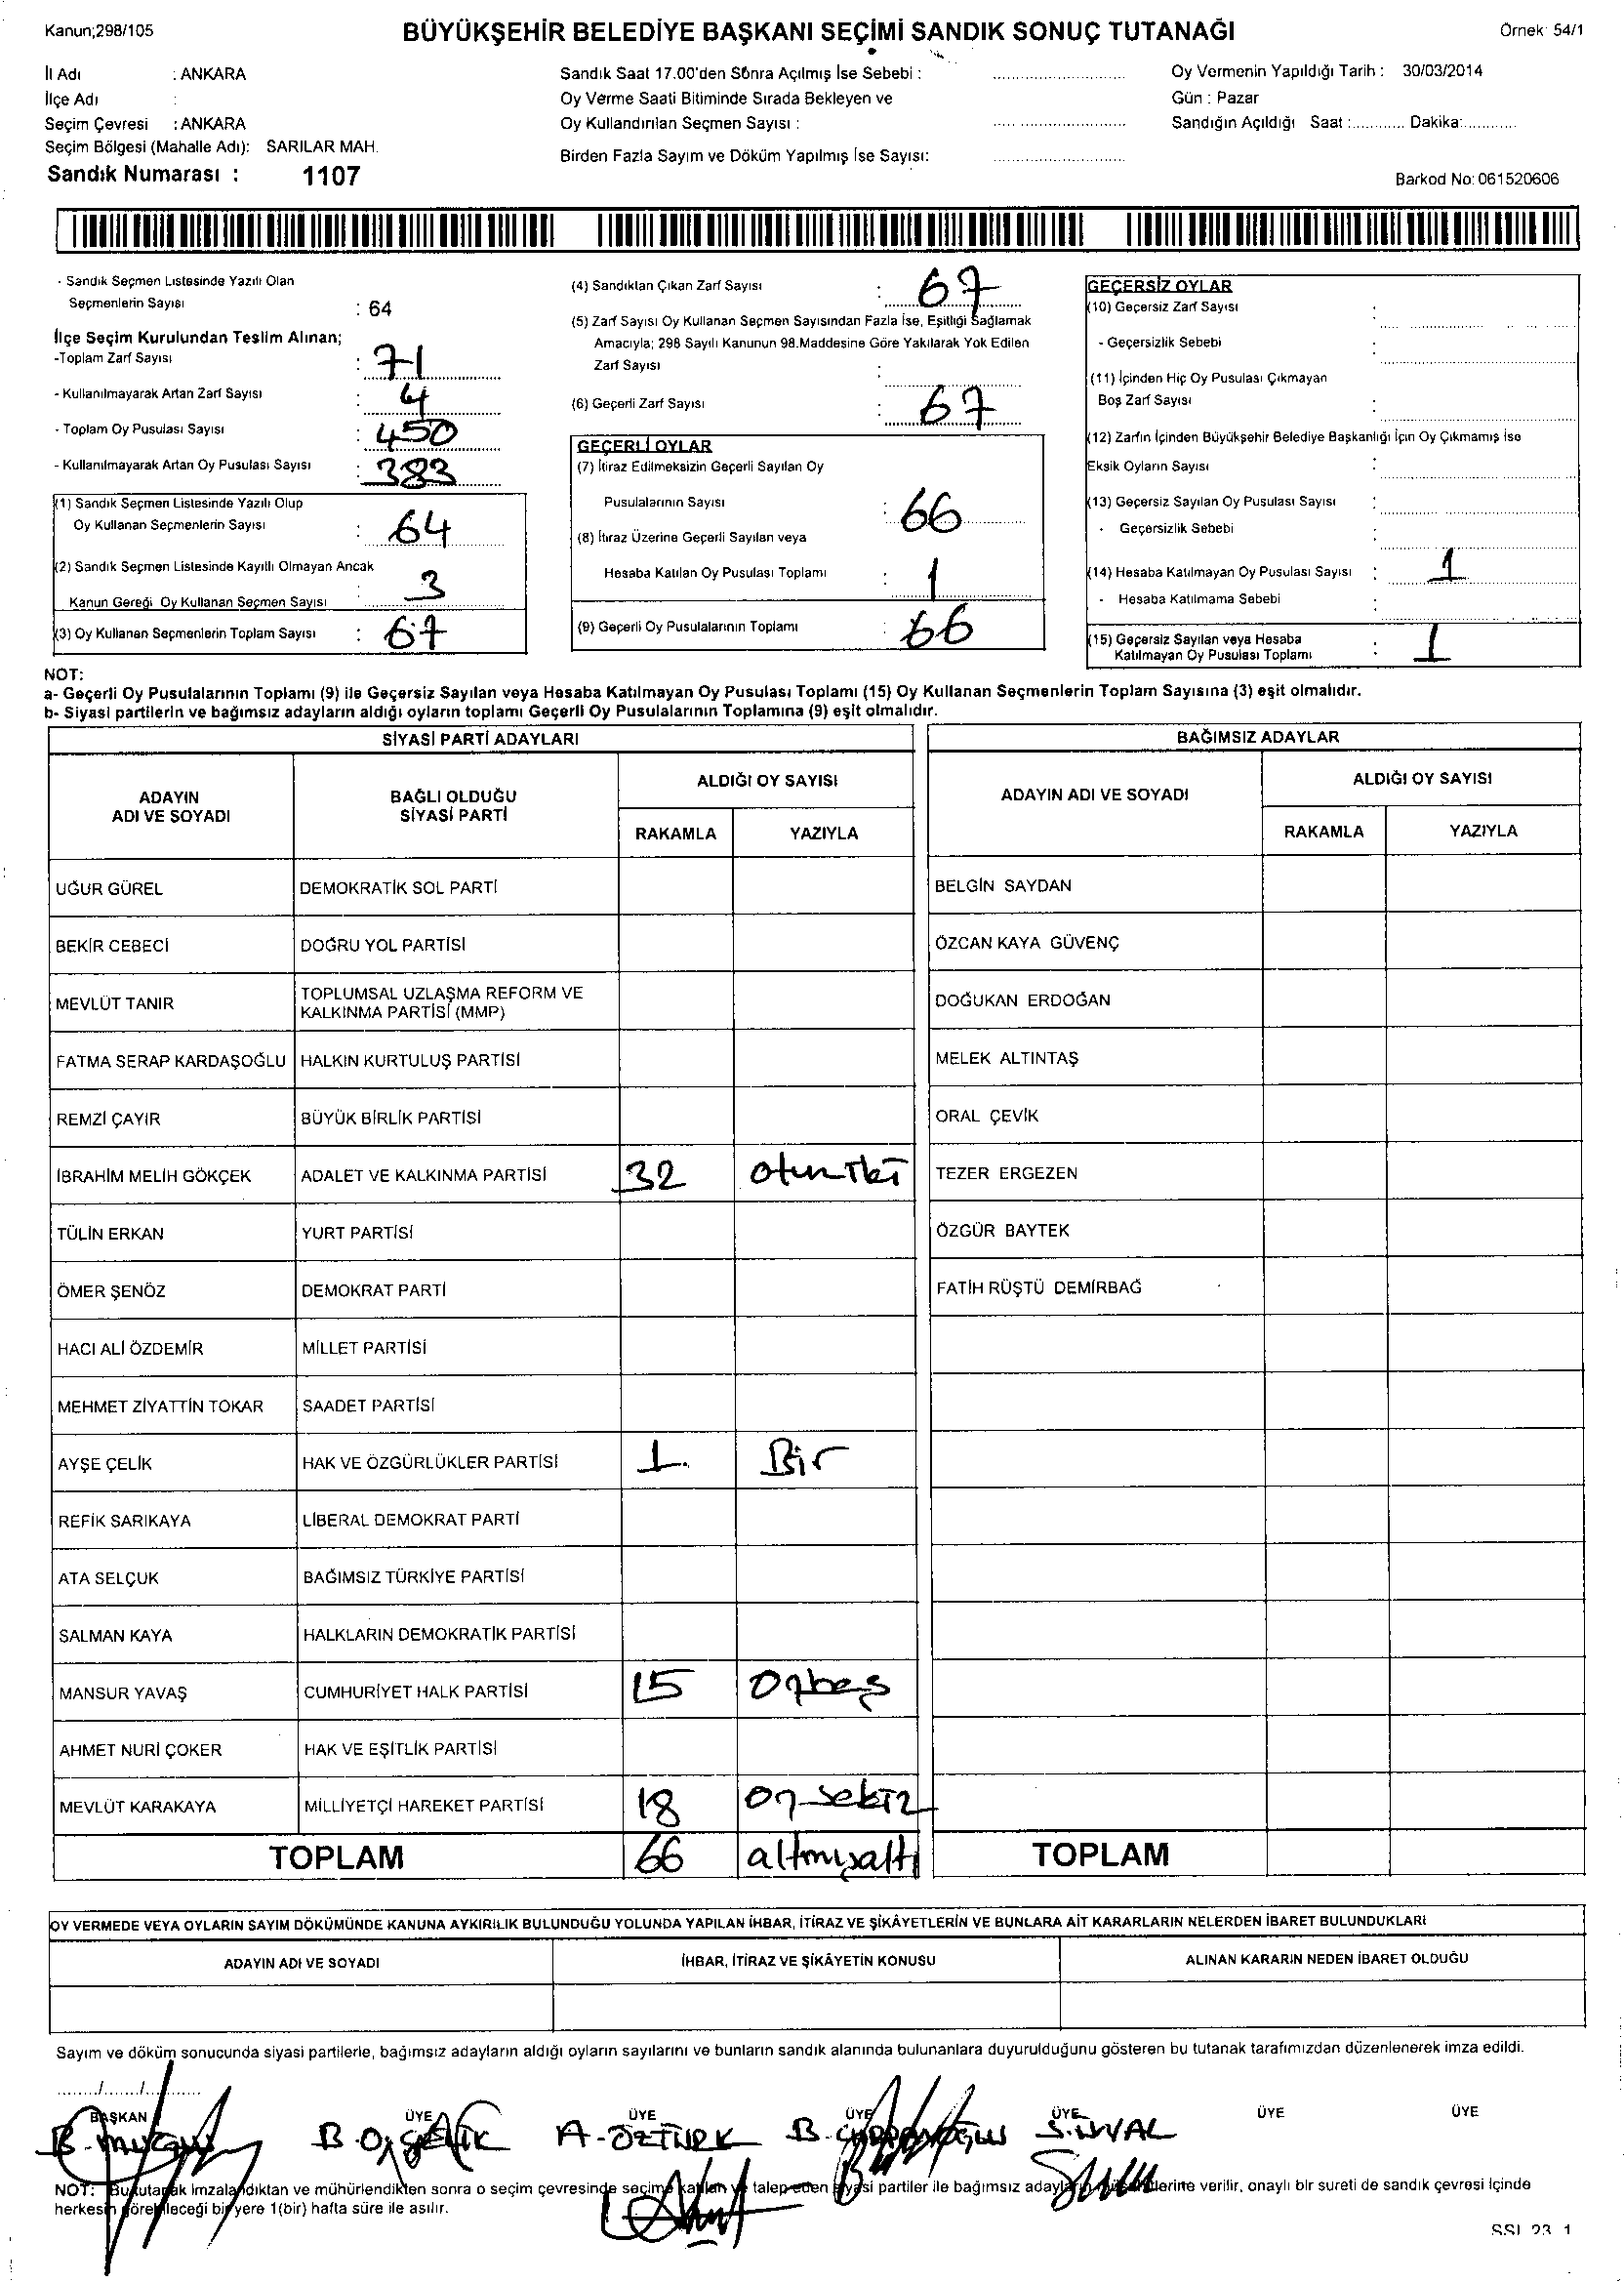 Kanun;298/105
BÜYÜKŞEHİR BELEDİYE BAŞKANI SEÇİMİ SANDIK SONUÇ TUTANAĞI
Örnek: 54/1
İl Adı : ANKARA
İlçe Adı :
Seçim Çevresi : ANKARA
Seçim Bölgesi (Mahalle Adı): SARILAR MAH.
Sandık Numarası : 1107
Sandık Saat 17.00'den Sonra Açılmış İse Sebebi :
Oy Verme Saati Bitiminde Sırada Bekleyen ve
Oy Kullandırılan Seçmen Sayısı :
Birden Fazla Sayım ve Döküm Yapılmış İse Sayısı:
Oy Vermenin Yapıldığı Tarih : 30/03/2014
Gün : Pazar
Sandığın Açıldığı Saat :........... Dakika:...........
Barkod No: 061520606
- Sandık Seçmen Listesinde Yazılı Olan
Seçmenlerin Sayısı : 64
İlçe Seçim Kurulundan Teslim Alınan;
-Toplam Zarf Sayısı : 71
- Kullanılmayarak Artan Zarf Sayısı : 4
- Toplam Oy Pusulası Sayısı : 450
- Kullanılmayarak Artan Oy Pusulası Sayısı : 383
(1) Sandık Seçmen Listesinde Yazılı Olup
Oy Kullanan Seçmenlerin Sayısı : 64
(2) Sandık Seçmen Listesinde Kayıtlı Olmayan Ancak
Kanun Gereği Oy Kullanan Seçmen Sayısı : 3
(3) Oy Kullanan Seçmenlerin Toplam Sayısı : 67
(4) Sandıktan Çıkan Zarf Sayısı : 67
(5) Zarf Sayısı Oy Kullanan Seçmen Sayısından Fazla İse, Eşitliği Sağlamak
Amacıyla; 298 Sayılı Kanunun 98.Maddesine Göre Yakılarak Yok Edilen
Zarf Sayısı :
(6) Geçerli Zarf Sayısı : 67
GEÇERLİ OYLAR
(7) İtiraz Edilmeksizin Geçerli Sayılan Oy
Pusulalarının Sayısı : 66
(8) İtiraz Üzerine Geçerli Sayılan veya
Hesaba Katılan Oy Pusulası Toplamı : 1
(9) Geçerli Oy Pusulalarının Toplamı : 66
GEÇERSİZ OYLAR
(10) Geçersiz Zarf Sayısı :
- Geçersizlik Sebebi :
(11) İçinden Hiç Oy Pusulası Çıkmayan
Boş Zarf Sayısı :
(12) Zarfın İçinden Büyükşehir Belediye Başkanlığı İçin Oy Çıkmamış İse
Eksik Oyların Sayısı :
(13) Geçersiz Sayılan Oy Pusulası Sayısı :
- Geçersizlik Sebebi :
(14) Hesaba Katılmayan Oy Pusulası Sayısı : 1
- Hesaba Katılmama Sebebi :
(15) Geçersiz Sayılan veya Hesaba
Katılmayan Oy Pusulası Toplamı : 1
NOT:
a- Geçerli Oy Pusulalarının Toplamı (9) ile Geçersiz Sayılan veya Hesaba Katılmayan Oy Pusulası Toplamı (15) Oy Kullanan Seçmenlerin Toplam Sayısına (3) eşit olmalıdır.
b- Siyasi partilerin ve bağımsız adayların aldığı oyların toplamı Geçerli Oy Pusulalarının Toplamına (9) eşit olmalıdır.
SİYASİ PARTİ ADAYLARI
ADAYIN ADI VE SOYADI
BAĞLI OLDUĞU SİYASİ PARTİ
ALDIĞI OY SAYISI
RAKAMLA YAZIYLA
UĞUR GÜREL DEMOKRATİK SOL PARTİ
BEKİR CEBECİ DOĞRU YOL PARTİSİ
MEVLÜT TANIR TOPLUMSAL UZLAŞMA REFORM VE
KALKINMA PARTİSİ (MMP)
FATMA SERAP KARDAŞOĞLU HALKIN KURTULUŞ PARTİSİ
REMZİ ÇAYIR BÜYÜK BİRLİK PARTİSİ
İBRAHİM MELİH GÖKÇEK ADALET VE KALKINMA PARTİSİ 32 otuziki
TÜLİN ERKAN YURT PARTİSİ
ÖMER ŞENÖZ DEMOKRAT PARTİ
HACI ALİ ÖZDEMİR MİLLET PARTİSİ
MEHMET ZİYATTİN TOKAR SAADET PARTİSİ
AYŞE ÇELİK HAK VE ÖZGÜRLÜKLER PARTİSİ 1. Bir
REFİK SARIKAYA LİBERAL DEMOKRAT PARTİ
ATA SELÇUK BAĞIMSIZ TÜRKİYE PARTİSİ
SALMAN KAYA HALKLARIN DEMOKRATİK PARTİSİ
MANSUR YAVAŞ CUMHURİYET HALK PARTİSİ 15 Onbeş
AHMET NURİ ÇOKER HAK VE EŞİTLİK PARTİSİ
MEVLÜT KARAKAYA MİLLİYETÇİ HAREKET PARTİSİ 18 onsekiz
TOPLAM 66 altmışaltı
BAĞIMSIZ ADAYLAR
ADAYIN ADI VE SOYADI
ALDIĞI OY SAYISI
RAKAMLA YAZIYLA
BELGİN SAYDAN
ÖZCAN KAYA GÜVENÇ
DOĞUKAN ERDOĞAN
MELEK ALTINTAŞ
ORAL ÇEVİK
TEZER ERGEZEN
ÖZGÜR BAYTEK
FATİH RÜŞTÜ DEMİRBAĞ
TOPLAM
OY VERMEDE VEYA OYLARIN SAYIM DÖKÜMÜNDE KANUNA AYKIRILIK BULUNDUĞU YOLUNDA YAPILAN İHBAR, İTİRAZ VE ŞİKÂYETLERİN VE BUNLARA AİT KARARLARIN NELERDEN İBARET BULUNDUKLARI
ADAYIN ADI VE SOYADI İHBAR, İTİRAZ VE ŞİKÂYETİN KONUSU ALINAN KARARIN NEDEN İBARET OLDUĞU
Sayım ve döküm sonucunda siyasi partilerle, bağımsız adayların aldığı oyların sayılarını ve bunların sandık alanında bulunanlara duyurulduğunu gösteren bu tutanak tarafımızdan düzenlenerek imza edildi.
......../......../........
BAŞKAN ÜYE ÜYE ÜYE ÜYE ÜYE ÜYE
A. ÖZTÜRK S. ÜNAL
NOT: Bu tutanak imzalandıktan ve mühürlendikten sonra o seçim çevresinde seçime katılan ve talep eden siyasi partiler ile bağımsız adayların verilir, onaylı bir sureti de sandık çevresi içinde
herkesin görebileceği bir yere 1(bir) hafta süre ile asılır.